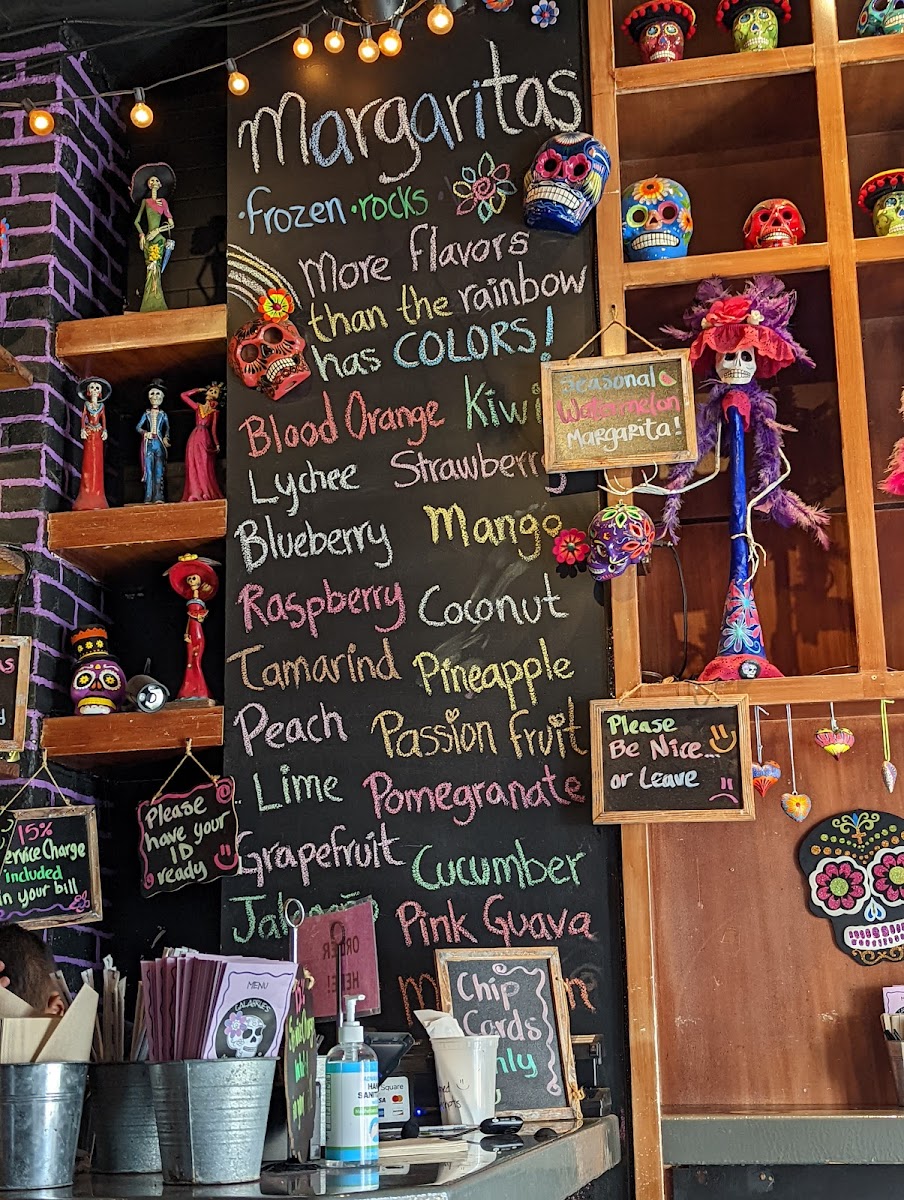 Margaritas
·frozen ·rocks
More flavors
than the rainbow
has COLORS!
Blood Orange Kiwi
Lychee Strawberry
Blueberry Mango
Raspberry Coconut
Tamarind Pineapple
Peach Passion fruit
Lime Pomegranate
Grapefruit Cucumber
Pink Guava
Seasonal
Watermelon
Margarita!
Please
Be Nice...
or Leave
Please
have your
ID
ready
15%
Service Charge
included
in your bill
MENU
CALAVERAS
ORDER
HERE!
Chip
Cards
Only
Square